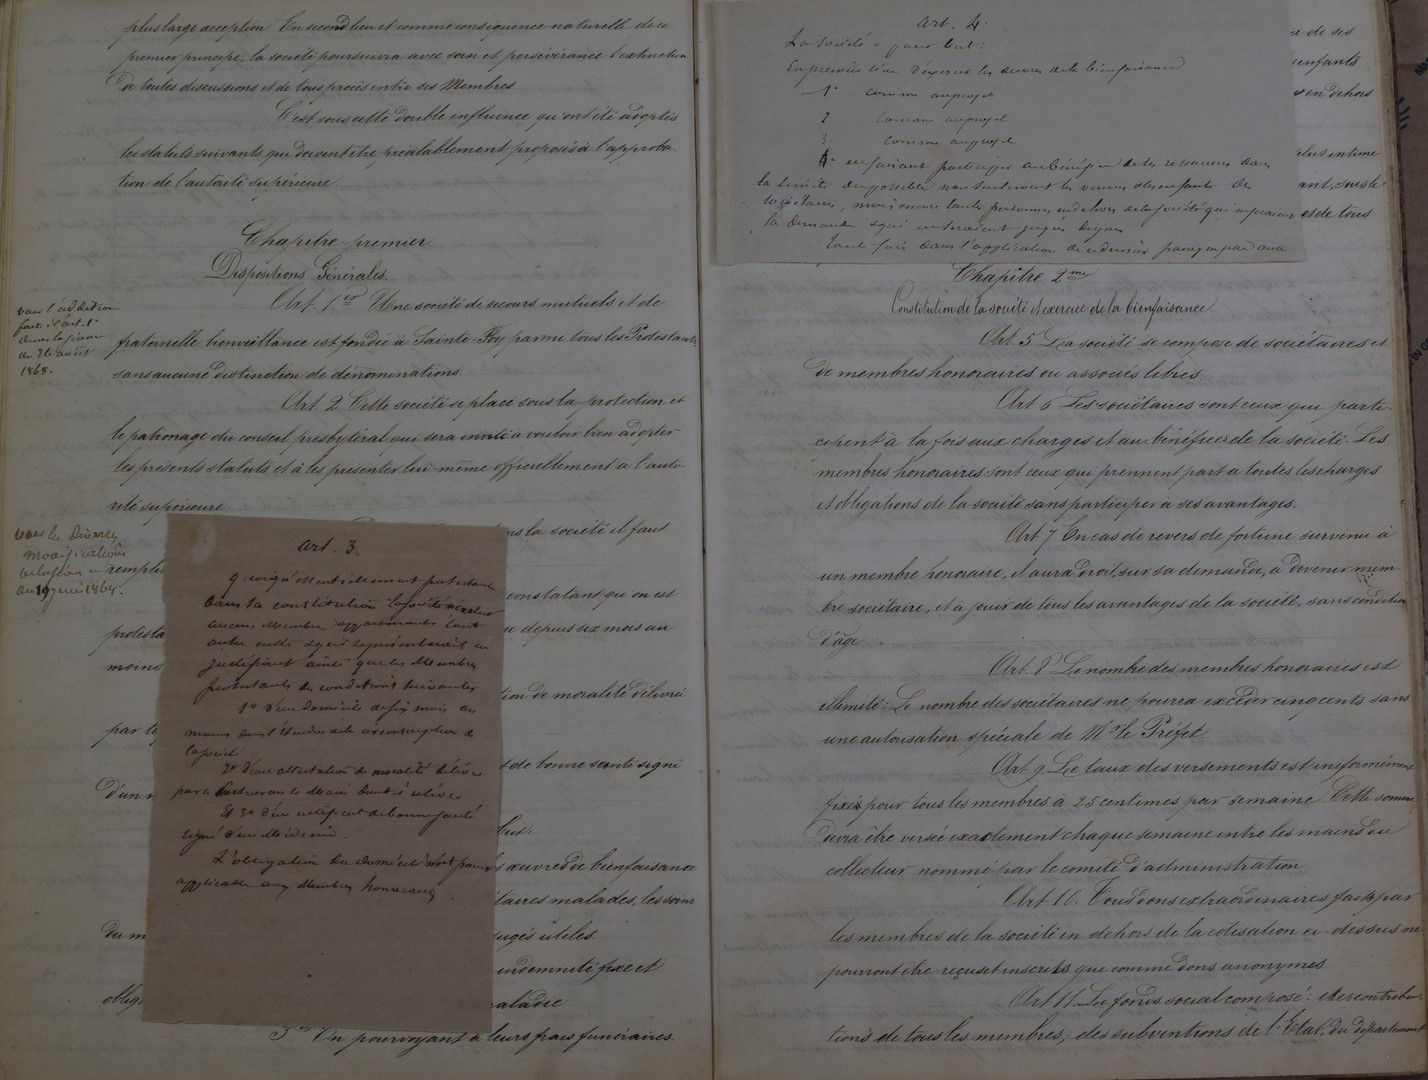 plus large acception. En second lieu et comme conséquence naturelle de ce
premier principe, la société poursuivra avec soin et persévérance l'extinction
De toutes discussions et de tous procès entre ses Membres.
C'est sous cette double influence qu'ont été adoptés
les statuts suivants qui doivent être préalablement proposés à l'approba-
tion de l'autorité supérieure
Chapitre premier.
Dispositions Générales.
Art. 1er Une société de secours mutuels et de
fraternelle bienveillance est fondée à Sainte-Foy parmi tous les Protestants
sans aucune distinction de dénominations.
Art. 2 Cette société se place sous la protection et
le patronage du conseil presbytéral qui sera invité à vouloir bien adopter
les présents statuts et à les présenter lui même officiellement à l'auto-
rité supérieure.
voir l'addition
faite à l'art. 1er
du 26 août
1868.
voir les Diverses
modifications
du 19 juin 1864.
ns la société il faut
rempli
constatant qu'on est
protesta
e depuis six mois au
moins
tion de moralité délivré
par le
t de bonne santé signé
D'un m
but:
s œuvres de bienfaisance
étaires malades, les soins
du m
jugés utiles.
indemnité fixe et
oblig
aladie
3° En pourvoyant à leurs frais funéraires.
art. 3.
quoiqu'essentiellement protestante
dans sa constitution la société
aucun Membre appartenant à tout
autre culte
justifiant ainsi que les Membres
protestants des conditions suivantes
1° d'un domicile de six mois au
moins dans l'étendue de la circonscription de
la société
2° d'une attestation de moralité délivrée
par le Pasteur ou le Maire
Et 3° d'un certificat de bonne santé
signé d'un Médecin.
L'obligation du domicile n'est pas
applicable aux Membres honoraires
art. 4.
La Société a pour but:
En premier lieu d'exercer les œuvres de la bienfaisance
1° comme au projet
2 comme au projet
3 comme au projet
4° en faisant participer au bénéfice de ses ressources dans
la limite du possible non seulement les veuves et les enfants des
sociétaires, mais encore toutes personnes en dehors de la société qui en feraient
la demande et qui en seraient jugées dignes
Toute fois dans l'application de ce dernier paragraphe
ce de ses
enfants
s en dehors
plus intime
ant, sous le
et de tous
Chapitre 2me
Constitution de la société et exercice de la bienfaisance
Art. 5 La société se compose de sociétaires et
de membres honoraires ou associés libres.
Art 6 Les sociétaires sont ceux qui parti-
cipent à la fois aux charges et au bénéfice de la société. Les
membres honoraires sont ceux qui prennent part à toutes les charges
et obligations de la société sans participer à ses avantages.
Art 7 En cas de revers de fortune survenu à
un membre honoraire, il aura droit, sur sa demande, à devenir mem-
bre sociétaire, et à jouir de tous les avantages de la société, sans condition
d'âge
Art. 8 Le nombre des membres honoraires est
illimité: Le nombre des sociétaires ne pourra excéder cinq cents sans
une autorisation spéciale de Mr le Préfet
Art 9 Le taux des versements est uniformément
fixé pour tous les membres à 25 centimes par semaine. Cette somme
devra être versée exactement chaque semaine entre les mains du
collecteur nommé par le comité d'administration
Art 10. Tous dons extraordinaires faits par
les membres de la société en dehors de la cotisation ci-dessus ne
pourront être reçus et inscrits que comme dons anonymes
Art 11. Le fonds social composé: des contribu-
tions de tous les membres; des subventions de l'Etat, du département